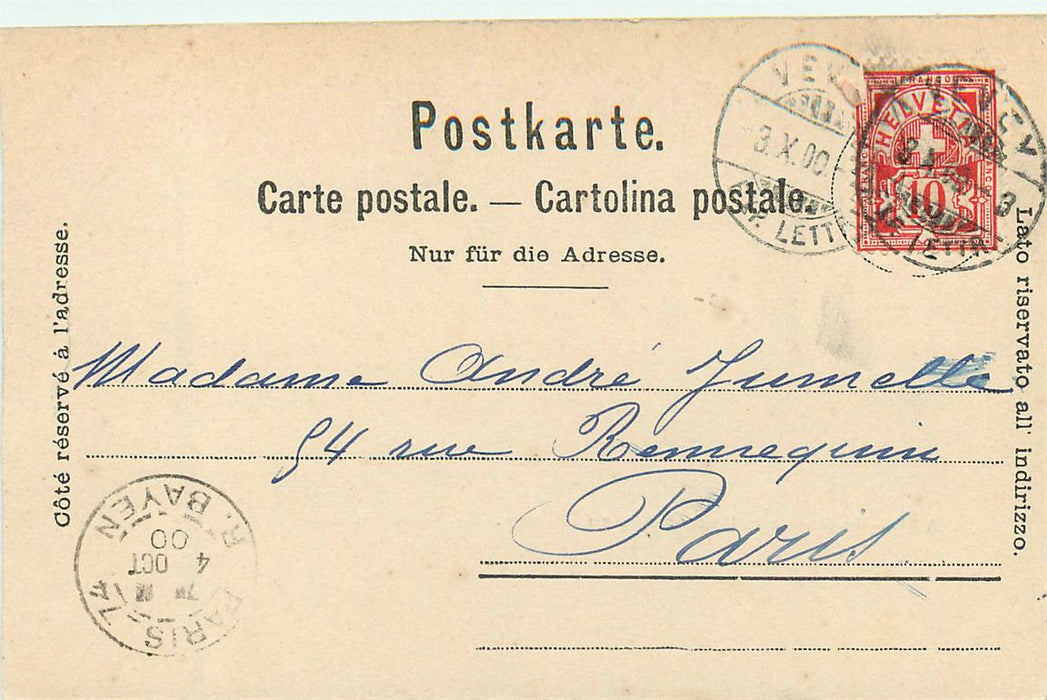 Postkarte.
Carte postale. — Cartolina postale.
Nur für die Adresse.
Côté réservé à l'adresse.
Lato riservato all' indirizzo.
FRANCO
HELVETIA
10
VEVEY
3.X.00
LETTR
3
Madame André Jumelle
54 rue Rennequin
Paris
PARIS 74
4 OCT
00
R. BAYEN